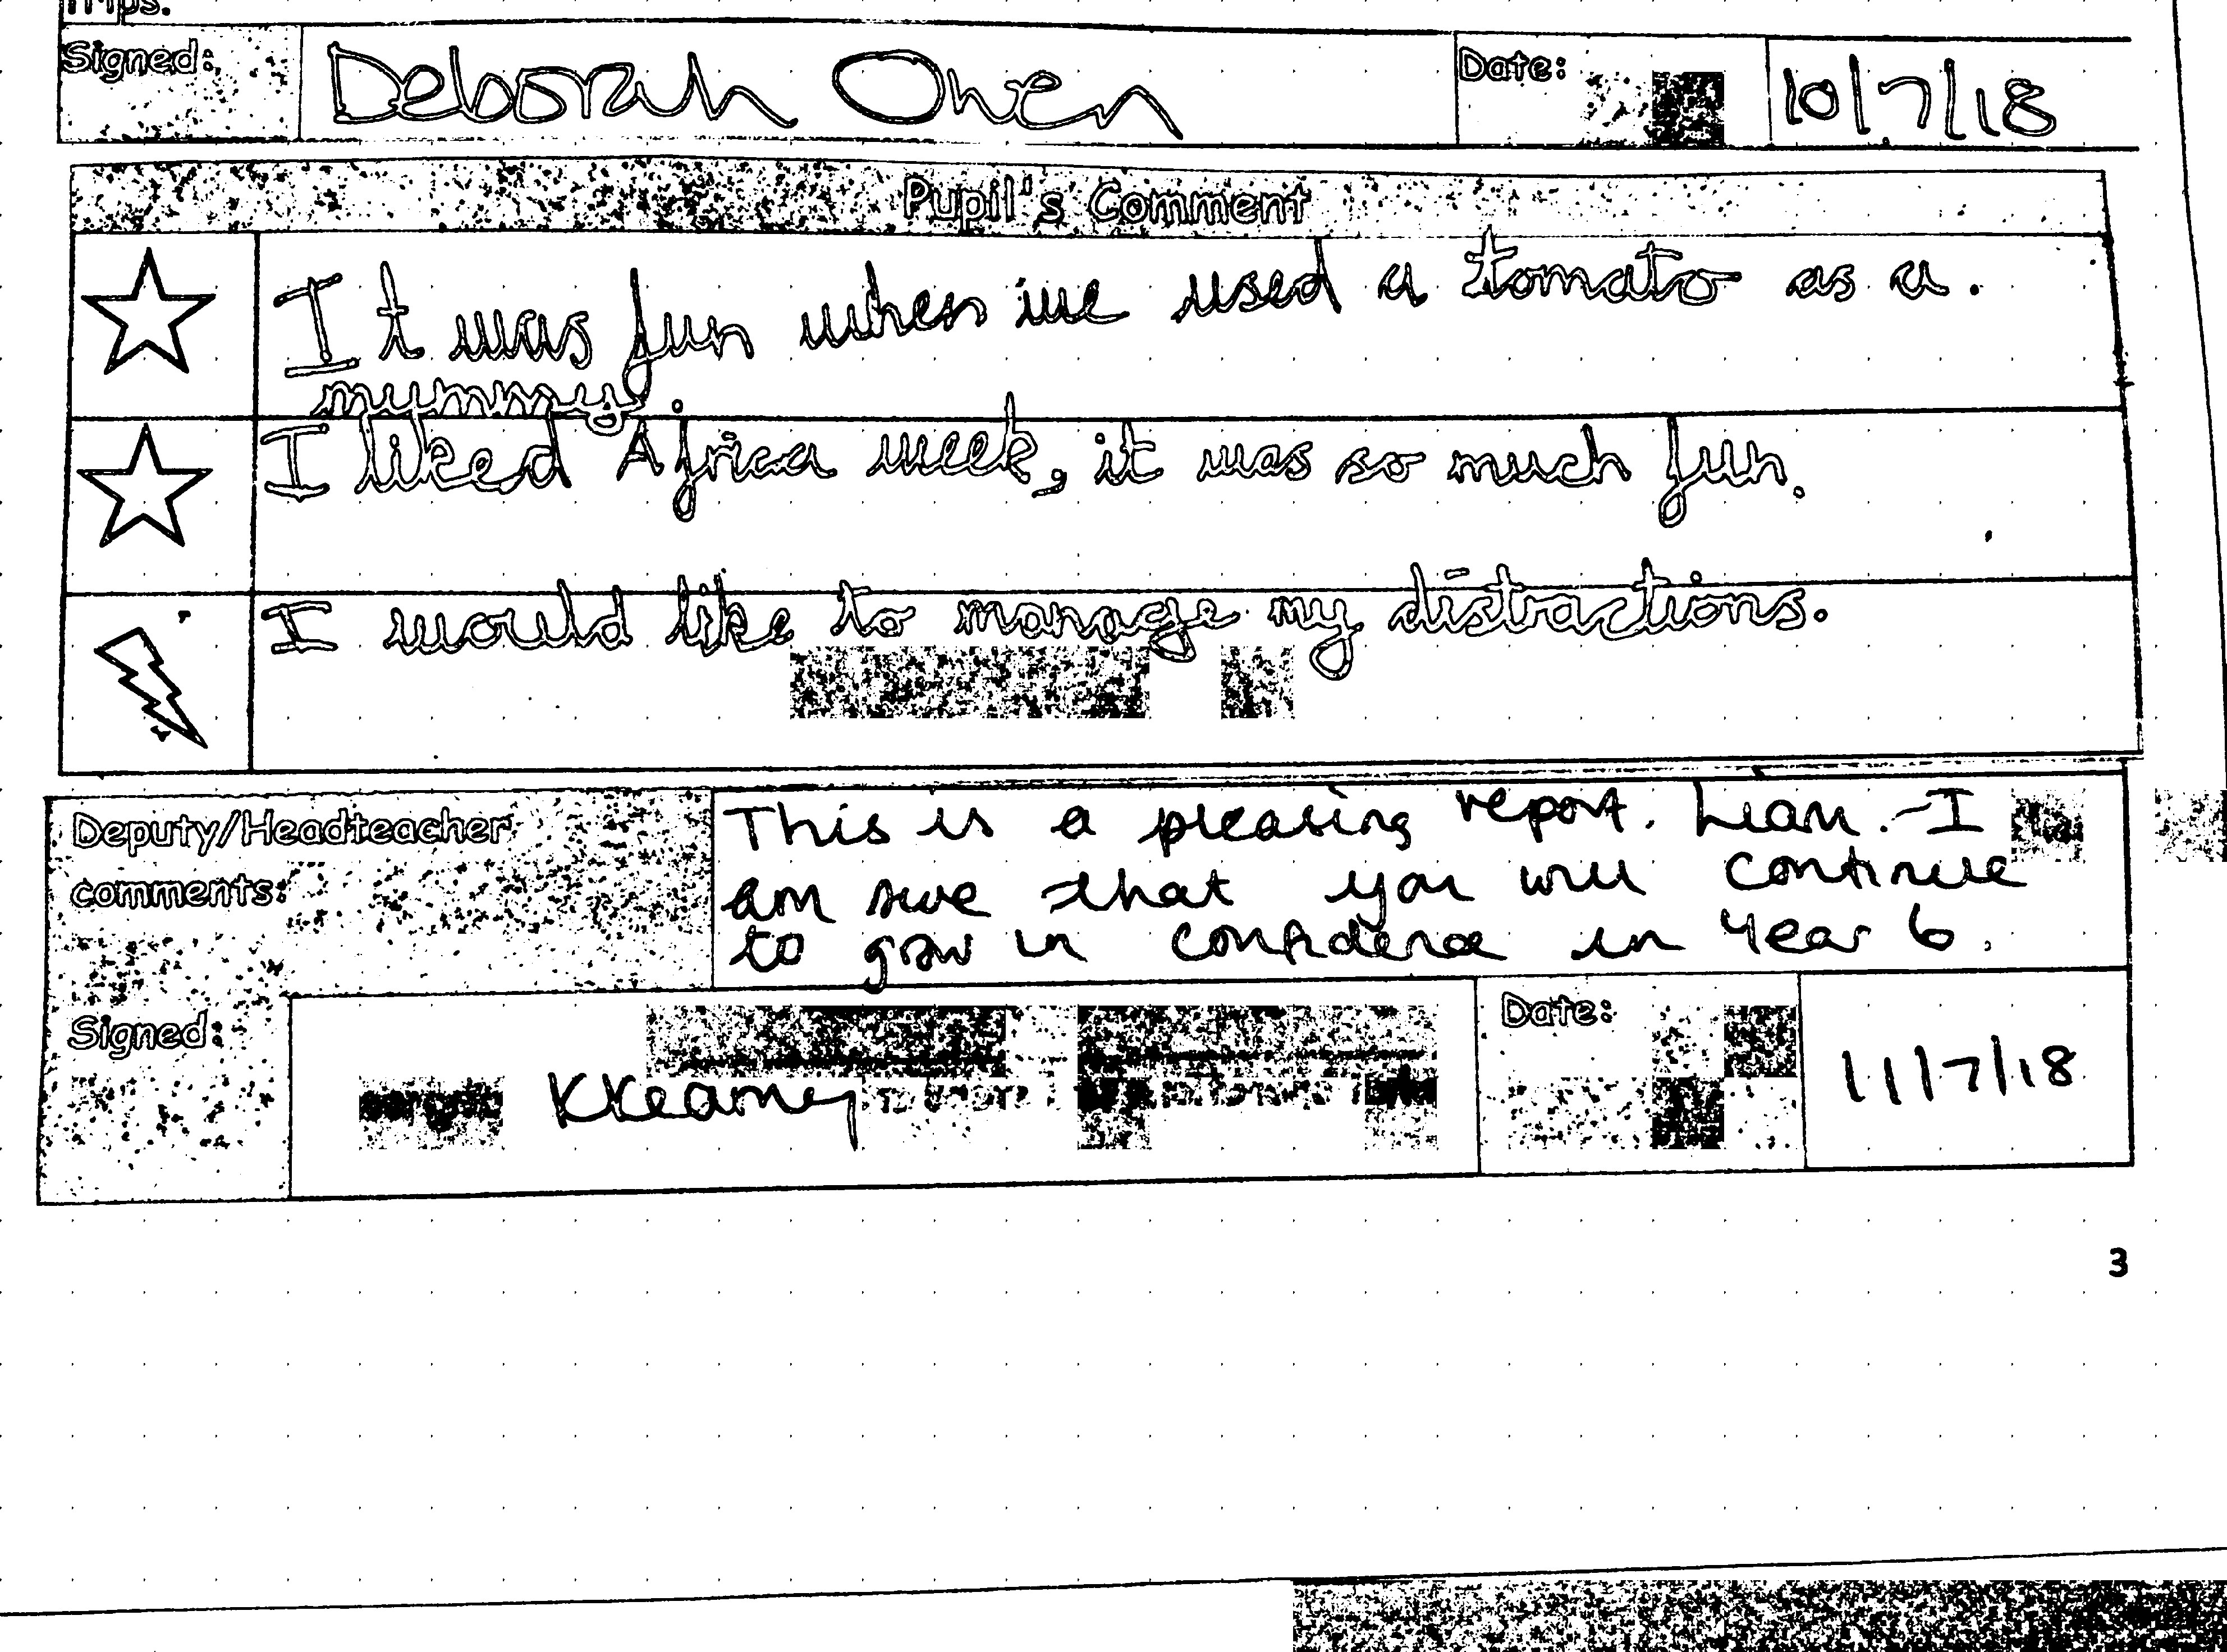 Signed: Deborah Owen Date: 10/7/18
Pupil's Comment
It was fun when we used a tomato as a.
mummy.
I liked Africa week, it was so much fun.
I would like to manage my distractions.
Deputy/Headteacher
comments:
This is a pleasing report. Liam. - I
am sure that you will continue
to grow in confidence in Year 6.
Signed: KKearney Date: 11/7/18
3